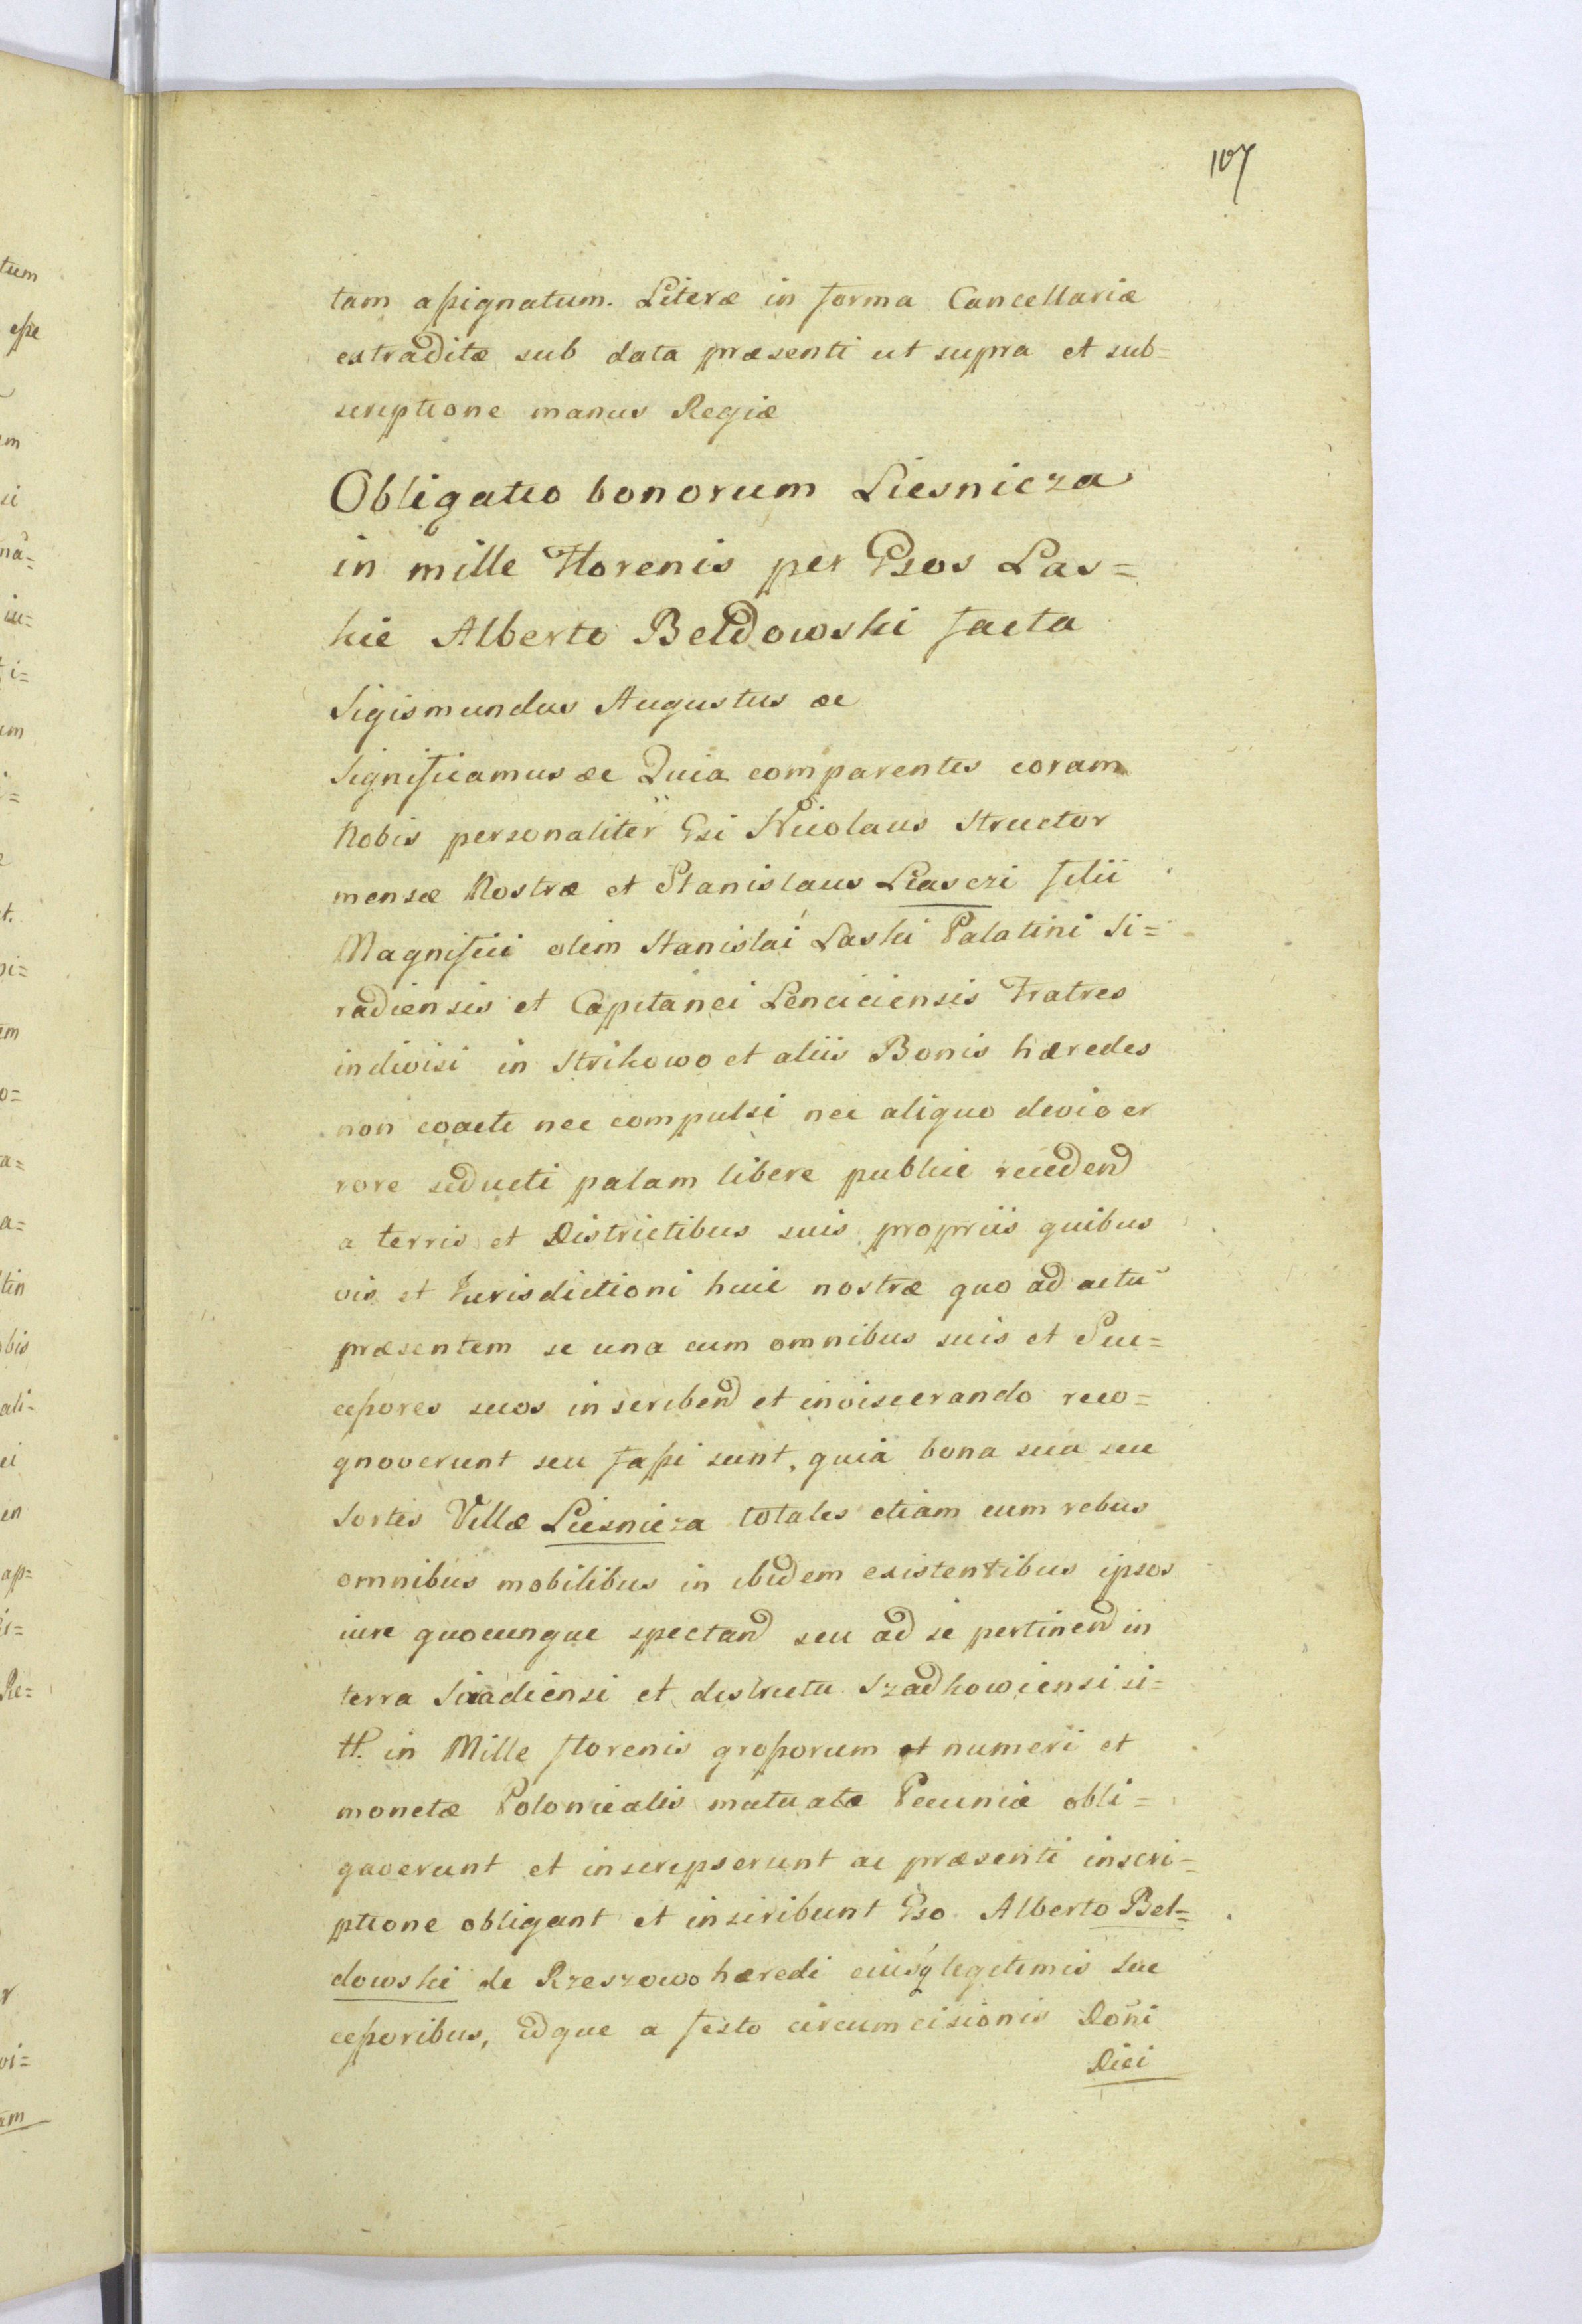 107
tam assignatum. Literæ in forma Cancellariæ
extraditæ sub data præsenti ut supra et sub=
scriptione manus Regiæ
Obligatio bonorum Liesnicza
in mille Florenis per Gsos Las=
kie Alberto Beldowski facta
Sigismundus Augustus æc
Significamus æc Quia comparentes coram
Nobis personaliter Gsi Nicolaus Structor
mensæ Nostræ et Stanislaus Liasczi filii
Magnifici olim Stanislai Laski Palatini Si=
radiensis et Capitanei Lenciciensis Fratres
indivisi in Strikowo et aliis Bonis hæredes
non coacti nec compulsi nec aliquo devio er
rore seducti palam libere publice recedend
a terris et Districtibus suis propriis quibus
vis et Jurisdictioni huic nostræ quo ad actũ
præsentem se una cum omnibus suis et Suc=
cessores suos inscribend et inviscerando reco=
gnoverunt seu fassi sunt, quia bona sua seu
Sortes Villæ Liesnicza totales etiam cum rebus
omnibus mobilibus in ibidem existentibus ipsos
iure quocunque spectand seu ad se pertinend in
terra Siradiensi et districtu Szadkowiensi si=
tt. in Mille florenis grossorum et numeri et
monetæ Polonicalis mutuatæ Pecuniæ obli=
gaverunt et inscripserunt ac præsenti inscri=
ptione obligant et inscribunt Gso Alberto Bel=
dowski de Rzeszowo hæredi eiusq legitimis Suc
cessoribus, idque a festo circumcisionis Doñi
Dici